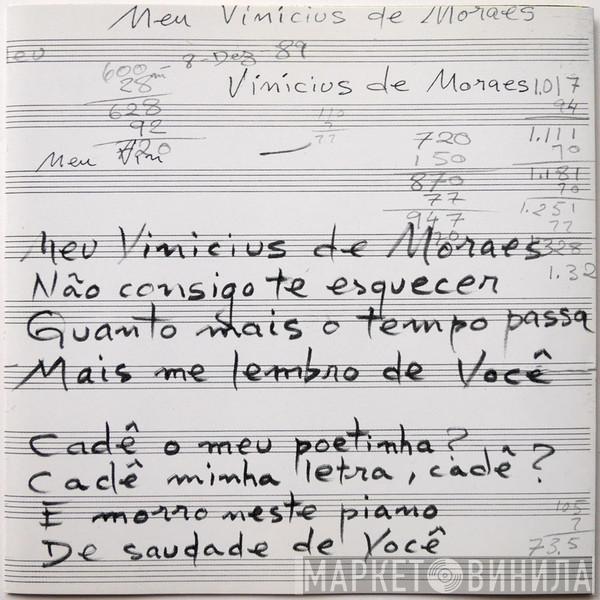 Meu Vinicius de Moraes
8-Dez 89
600
28
628
92
720
Vinicius de Moraes
1.017
94
1.111
70
1.181
70
1.251
77
1.328
1.32
110
7
77
720
150
870
77
947
Meu Vini
Meu Vinicius de Moraes
Não consigo te esquecer
Quanto mais o tempo passa
Mais me lembro de Você
Cadê o meu poetinha?
Cadê minha letra, cadê?
E morro neste piano
De saudade de Você
105
7
73.5
МАРКЕТ ВИНИЛА